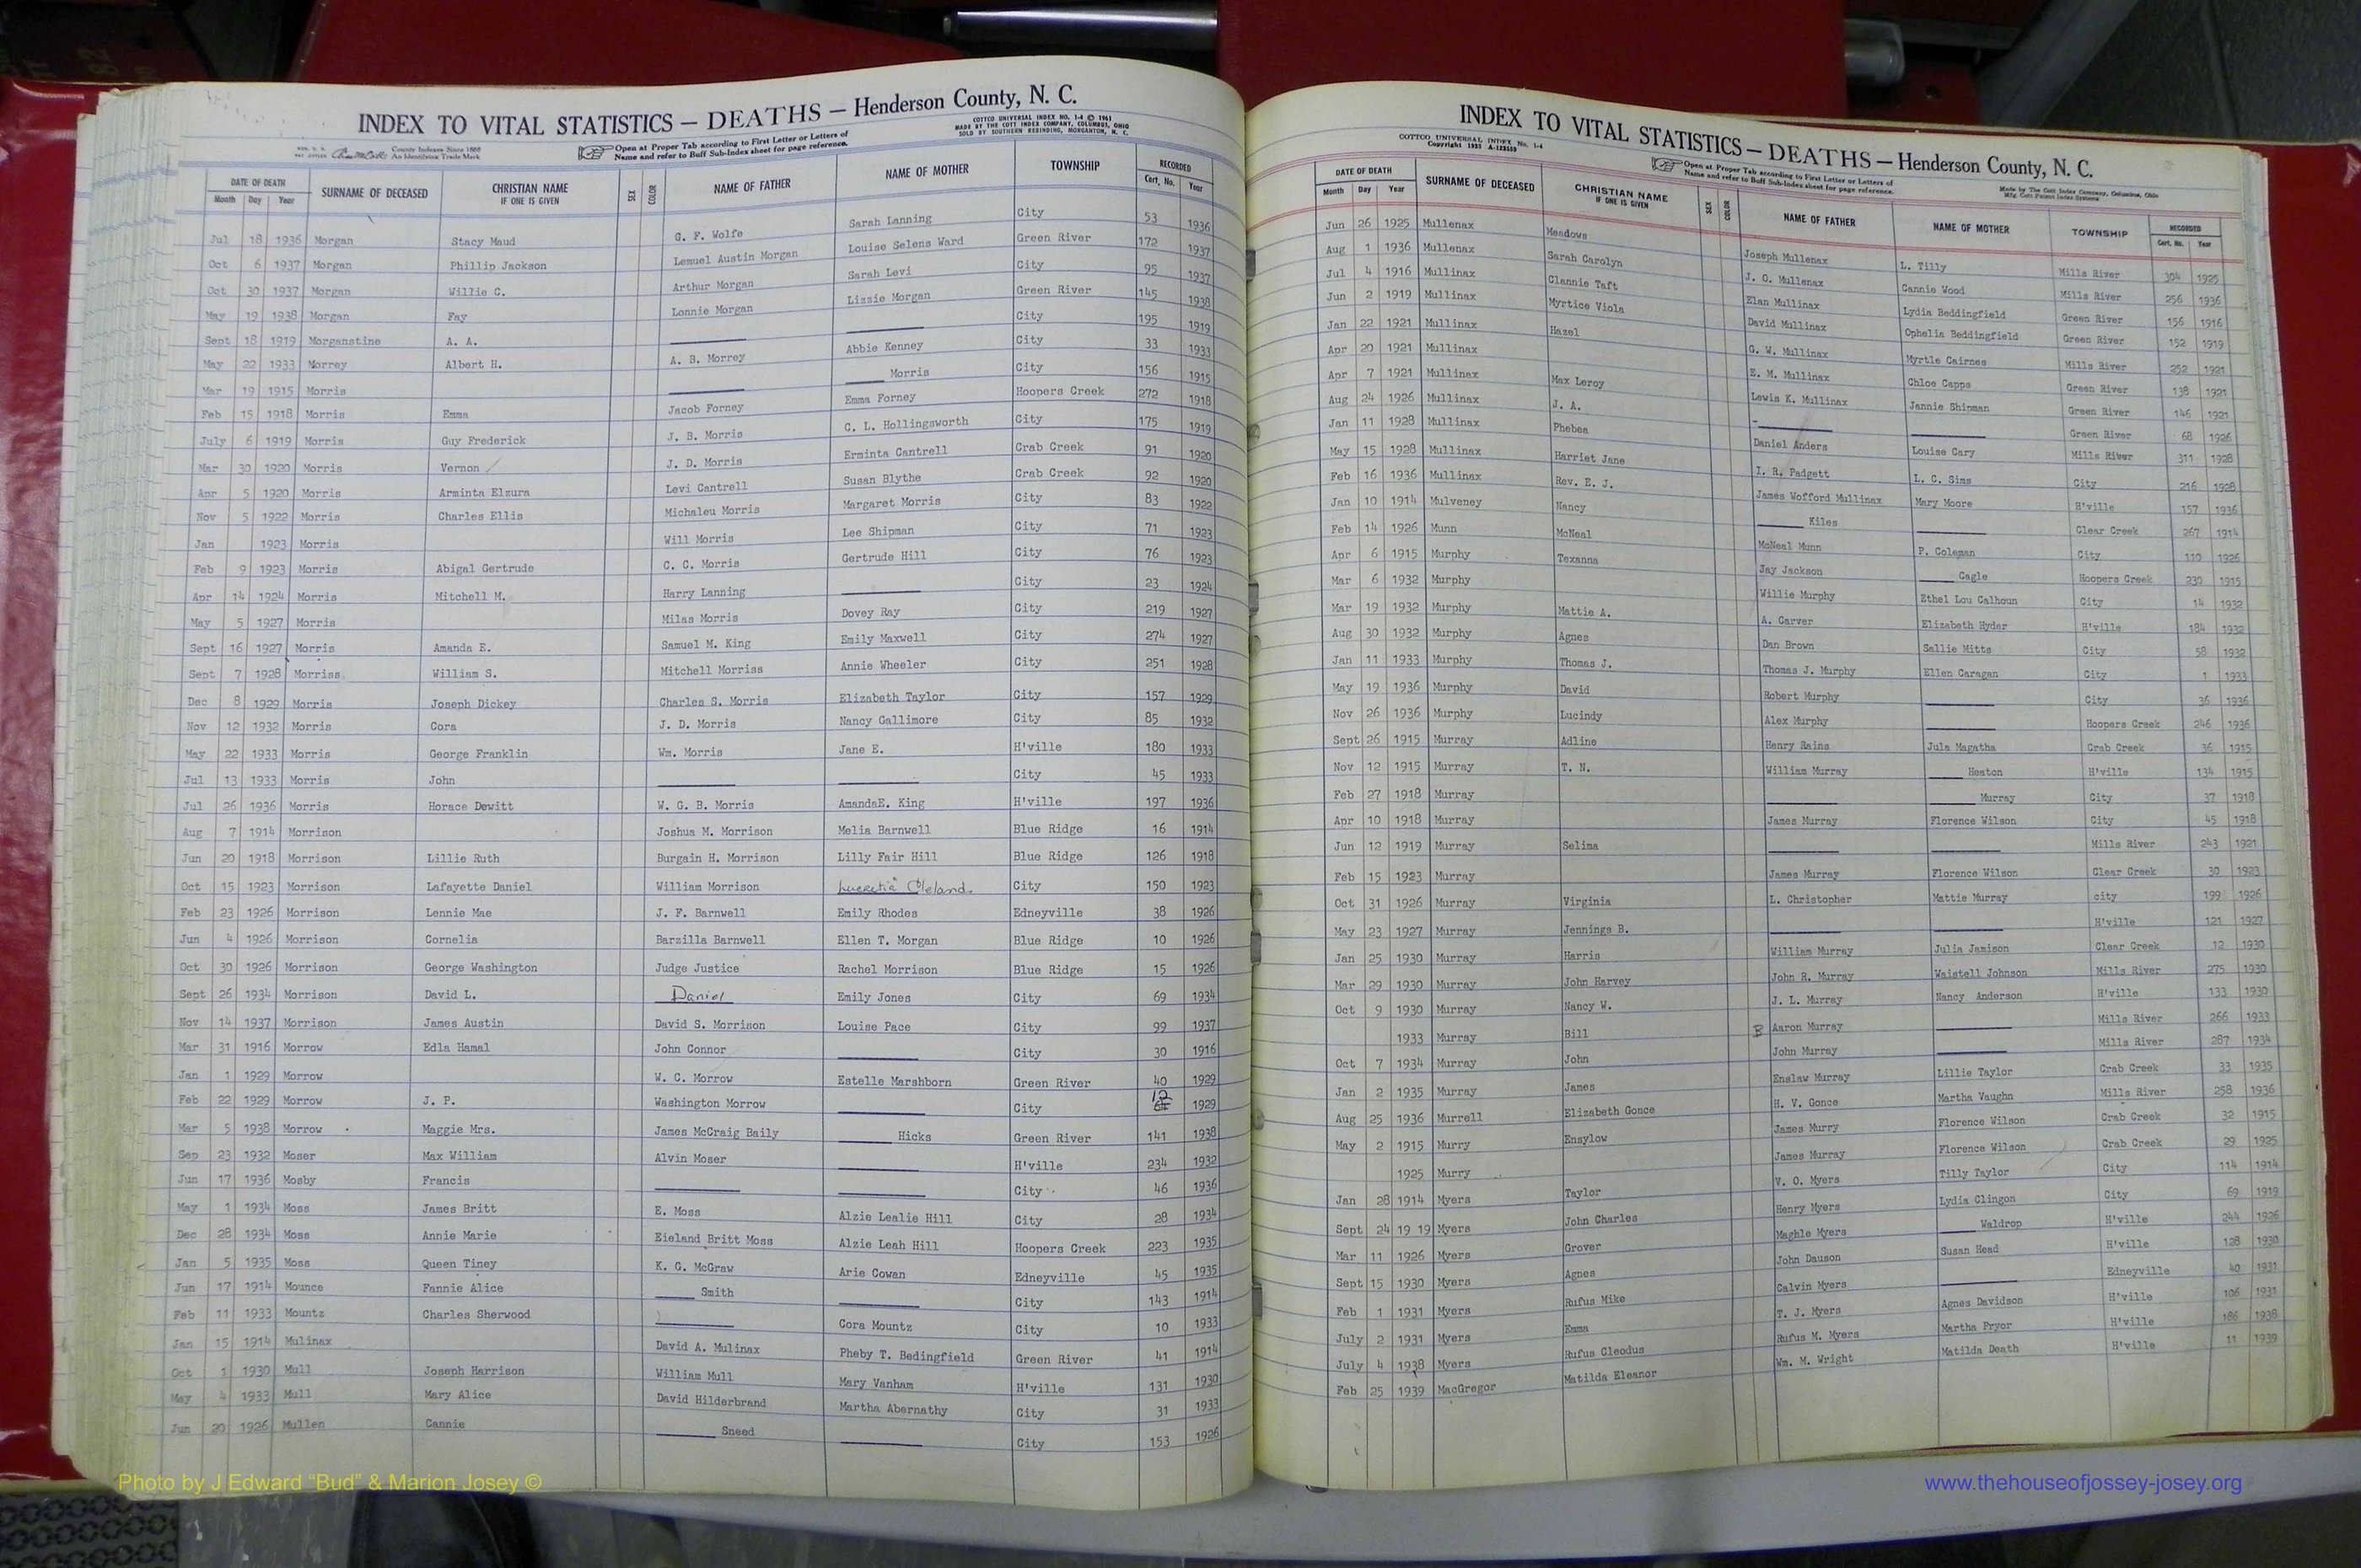 INDEX TO VITAL STATISTICS — DEATHS — Henderson County, N. C.
COTTCO UNIVERSAL INDEX NO. 1-4 © 1961
MADE BY THE COTT INDEX COMPANY, COLUMBUS, OHIO
SOLD BY SOUTHERN REBINDING, MORGANTON, N. C.
County Indexes Since 1888
An Identifying Trade Mark
Open at Proper Tab according to First Letter or Letters of
Name and refer to Buff Sub-Index sheet for page reference.
DATE OF DEATH SURNAME OF DECEASED CHRISTIAN NAME IF ONE IS GIVEN SEX COLOR NAME OF FATHER NAME OF MOTHER TOWNSHIP RECORDED
Month Day Year Cert. No. Year
Jul 18 1936 Morgan Stacy Maud G. F. Wolfe Sarah Lanning City 53 1936
Oct 6 1937 Morgan Phillip Jackson Lemuel Austin Morgan Louise Selens Ward Green River 172 1937
Oct 30 1937 Morgan Willie C. Arthur Morgan Sarah Levi City 95 1937
May 19 1938 Morgan Fay Lonnie Morgan Lizzie Morgan Green River 145 1938
Sept 18 1919 Morganstine A. A. City 195 1919
May 22 1933 Morrey Albert H. A. B. Morrey Abbie Kenney City 33 1933
Mar 19 1915 Morris Morris City 156 1915
Feb 15 1918 Morris Emma Jacob Forney Emma Forney Hoopers Creek 272 1918
July 6 1919 Morris Guy Frederick J. B. Morris C. L. Hollingsworth City 175 1919
Mar 30 1920 Morris Vernon J. D. Morris Erminta Cantrell Crab Creek 91 1920
Apr 5 1920 Morris Arminta Elzura Levi Cantrell Susan Blythe Crab Creek 92 1920
Nov 5 1922 Morris Charles Ellis Michaleu Morris Margaret Morris City 83 1922
Jan 1923 Morris Will Morris Lee Shipman City 71 1923
Feb 9 1923 Morris Abigal Gertrude C. C. Morris Gertrude Hill City 76 1923
Apr 14 1924 Morris Mitchell M. Harry Lanning City 23 1924
May 5 1927 Morris Milas Morris Dovey Ray City 219 1927
Sept 16 1927 Morris Amanda E. Samuel M. King Emily Maxwell City 274 1927
Sept 7 1928 Morriss William S. Mitchell Morriss Annie Wheeler City 251 1928
Dec 8 1929 Morris Joseph Dickey Charles S. Morris Elizabeth Taylor City 157 1929
Nov 12 1932 Morris Cora J. D. Morris Nancy Gallimore City 85 1932
May 22 1933 Morris George Franklin Wm. Morris Jane E. H'ville 180 1933
Jul 13 1933 Morris John City 45 1933
Jul 26 1936 Morris Horace Dewitt W. G. B. Morris AmandaE. King H'ville 197 1936
Aug 7 1914 Morrison Joshua M. Morrison Melia Barnwell Blue Ridge 16 1914
Jun 20 1918 Morrison Lillie Ruth Burgain H. Morrison Lilly Fair Hill Blue Ridge 126 1918
Oct 15 1923 Morrison Lafayette Daniel William Morrison Lucretia Cleland City 150 1923
Feb 23 1926 Morrison Lennie Mae J. F. Barnwell Emily Rhodes Edneyville 38 1926
Jun 4 1926 Morrison Cornelia Barzilla Barnwell Ellen T. Morgan Blue Ridge 10 1926
Oct 30 1926 Morrison George Washington Judge Justice Rachel Morrison Blue Ridge 15 1926
Sept 26 1934 Morrison David L. Daniel Emily Jones City 69 1934
Nov 14 1937 Morrison James Austin David S. Morrison Louise Pace City 99 1937
Mar 31 1916 Morrow Edla Hamal John Connor City 30 1916
Jan 1 1929 Morrow W. C. Morrow Estelle Marshborn Green River 40 1929
Feb 22 1929 Morrow J. P. Washington Morrow City 12 1929
Mar 5 1938 Morrow Maggie Mrs. James McCraig Baily Hicks Green River 141 1938
Sep 23 1932 Moser Max William Alvin Moser H'ville 234 1932
Jun 17 1936 Mosby Francis City 46 1936
May 1 1934 Moss James Britt E. Moss Alzie Lealie Hill City 28 1934
Dec 28 1934 Moss Annie Marie Eieland Britt Moss Alzie Leah Hill Hoopers Creek 223 1935
Jan 5 1935 Moss Queen Tiney K. G. McGraw Arie Cowan Edneyville 45 1935
Jun 17 1914 Mounce Fannie Alice Smith City 143 1914
Feb 11 1933 Mountz Charles Sherwood Cora Mountz City 10 1933
Jan 15 1914 Mulinax David A. Mulinax Pheby T. Bedingfield Green River 41 1914
Oct 1 1930 Mull Joseph Harrison William Mull Mary Vanham H'ville 131 1930
May 4 1933 Mull Mary Alice David Hilderbrand Martha Abernathy City 31 1933
Jun 20 1926 Mullen Cannie Sneed City 153 1926
Photo by J Edward “Bud” & Marion Josey ©
INDEX TO VITAL STATISTICS — DEATHS — Henderson County, N. C.
COTTCO UNIVERSAL INDEX No. 1-4
Open at Proper Tab according to First Letter or Letters of
Name and refer to Buff Sub-Index sheet for page reference.
Made by The Cott Index Company, Columbus, Ohio
DATE OF DEATH SURNAME OF DECEASED CHRISTIAN NAME IF ONE IS GIVEN SEX COLOR NAME OF FATHER NAME OF MOTHER TOWNSHIP RECORDED
Month Day Year Cert. No. Year
Jun 26 1925 Mullenax Meadows Joseph Mullenax L. Tilly Mills River 304 1925
Aug 1 1936 Mullenax Sarah Carolyn J. O. Mullenax Cannie Wood Mills River 256 1936
Jul 4 1916 Mullinax Clannie Taft Elan Mullinax Lydia Beddingfield Green River 156 1916
Jun 2 1919 Mullinax Myrtice Viola David Mullinax Ophelia Beddingfield Green River 152 1919
Jan 22 1921 Mullinax Hazel G. W. Mullinax Myrtle Cairnes Mills River 252 1921
Apr 20 1921 Mullinax E. M. Mullinax Chloe Capps Green River 138 1921
Apr 7 1921 Mullinax Max Leroy Lewis K. Mullinax Jannie Shipman Green River 146 1921
Aug 24 1926 Mullinax J. A. Green River 68 1926
Jan 11 1928 Mullinax Phebea Daniel Anders Louise Cary Mills River 311 1928
May 15 1928 Mullinax Harriet Jane I. R. Padgett L. C. Sims City 216 1928
Feb 16 1936 Mullinax Rev. E. J. James Wofford Mullinax Mary Moore H'ville 157 1936
Jan 10 1914 Mulveney Nancy Kiles Clear Creek 267 1914
Feb 14 1926 Munn McNeal McNeal Munn P. Coleman City 110 1926
Apr 6 1915 Murphy Texanna Jay Jackson Cagle Hoopers Creek 230 1915
Mar 6 1932 Murphy Willie Murphy Ethel Lou Calhoun City 14 1932
Mar 19 1932 Murphy Mattie A. A. Carver Elizabeth Hyder H'ville 184 1932
Aug 30 1932 Murphy Agnes Dan Brown Sallie Mitts City 58 1932
Jan 11 1933 Murphy Thomas J. Thomas J. Murphy Ellen Caragan City 1 1933
May 19 1936 Murphy David Robert Murphy City 36 1936
Nov 26 1936 Murphy Lucindy Alex Murphy Hoopers Creek 246 1936
Sept 26 1915 Murray Adline Henry Rains Jula Magatha Crab Creek 36 1915
Nov 12 1915 Murray T. N. William Murray Heaton H'ville 134 1915
Feb 27 1918 Murray Murray City 37 1918
Apr 10 1918 Murray James Murray Florence Wilson City 45 1918
Jun 12 1919 Murray Selima Mills River 243 1921
Feb 15 1923 Murray James Murray Florence Wilson Clear Creek 30 1923
Oct 31 1926 Murray Virginia L. Christopher Mattie Murray city 199 1926
May 23 1927 Murray Jennings B. H'ville 121 1927
Jan 25 1930 Murray Harris William Murray Julia Jamison Clear Creek 12 1930
Mar 29 1930 Murray John Harvey John R. Murray Waistell Johnson Mills River 275 1930
Oct 9 1930 Murray Nancy W. J. L. Murray Nancy Anderson H'ville 133 1930
1933 Murray Bill B Aaron Murray Mills River 266 1933
Oct 7 1934 Murray John John Murray Mills River 287 1934
Jan 2 1935 Murray James Enslaw Murray Lillie Taylor Crab Creek 33 1935
Aug 25 1936 Murrell Elizabeth Gonce H. V. Gonce Martha Vaughn Mills River 258 1936
May 2 1915 Murry Ensylow James Murry Florence Wilson Crab Creek 32 1915
1925 Murry James Murray Florence Wilson Crab Creek 29 1925
Jan 28 1914 Myers Taylor V. O. Myers Tilly Taylor City 114 1914
Sept 24 19 19 Myers John Charles Henry Myers Lydia Clingon City 69 1919
Mar 11 1926 Myers Grover Maghle Myers Waldrop H'ville 244 1926
Sept 15 1930 Myers Agnes John Dauson Susan Head H'ville 128 1930
Feb 1 1931 Myers Rufus Mike Calvin Myers Edneyville 40 1931
July 2 1931 Myers Emma T. J. Myers Agnes Davidson H'ville 106 1931
July 4 1938 Myers Rufus Cleodus Rufus M. Myers Martha Pryor H'ville 186 1938
Feb 25 1939 MacGregor Matilda Eleanor Wm. M. Wright Matilda Death H'ville 11 1939
www.thehouseofjossey-josey.org